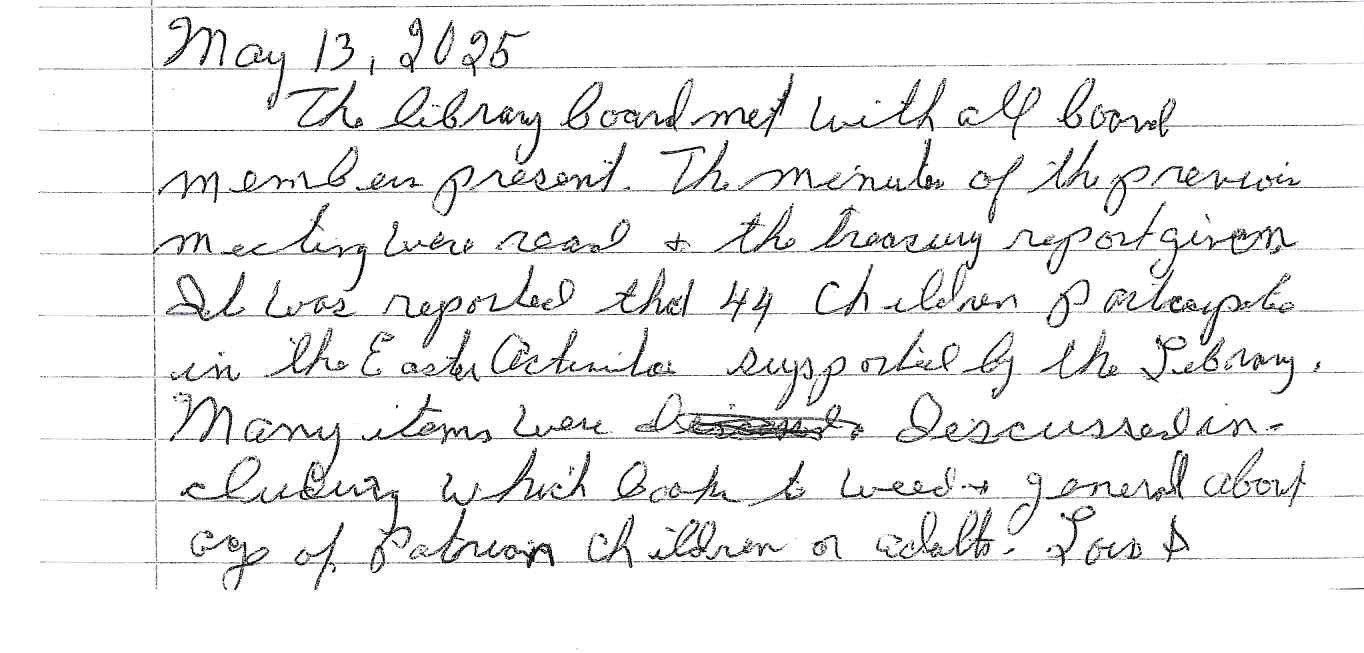 May 13, 2025
The library board met with all board
members present. The minutes of the previous
meeting were read & the treasury report given
It was reported that 44 children participate
in the Easter Activities supported by the Library.
Many items were Discussed in-
cluding which books to weed & general about
age of Patrons children or adults. Lois S